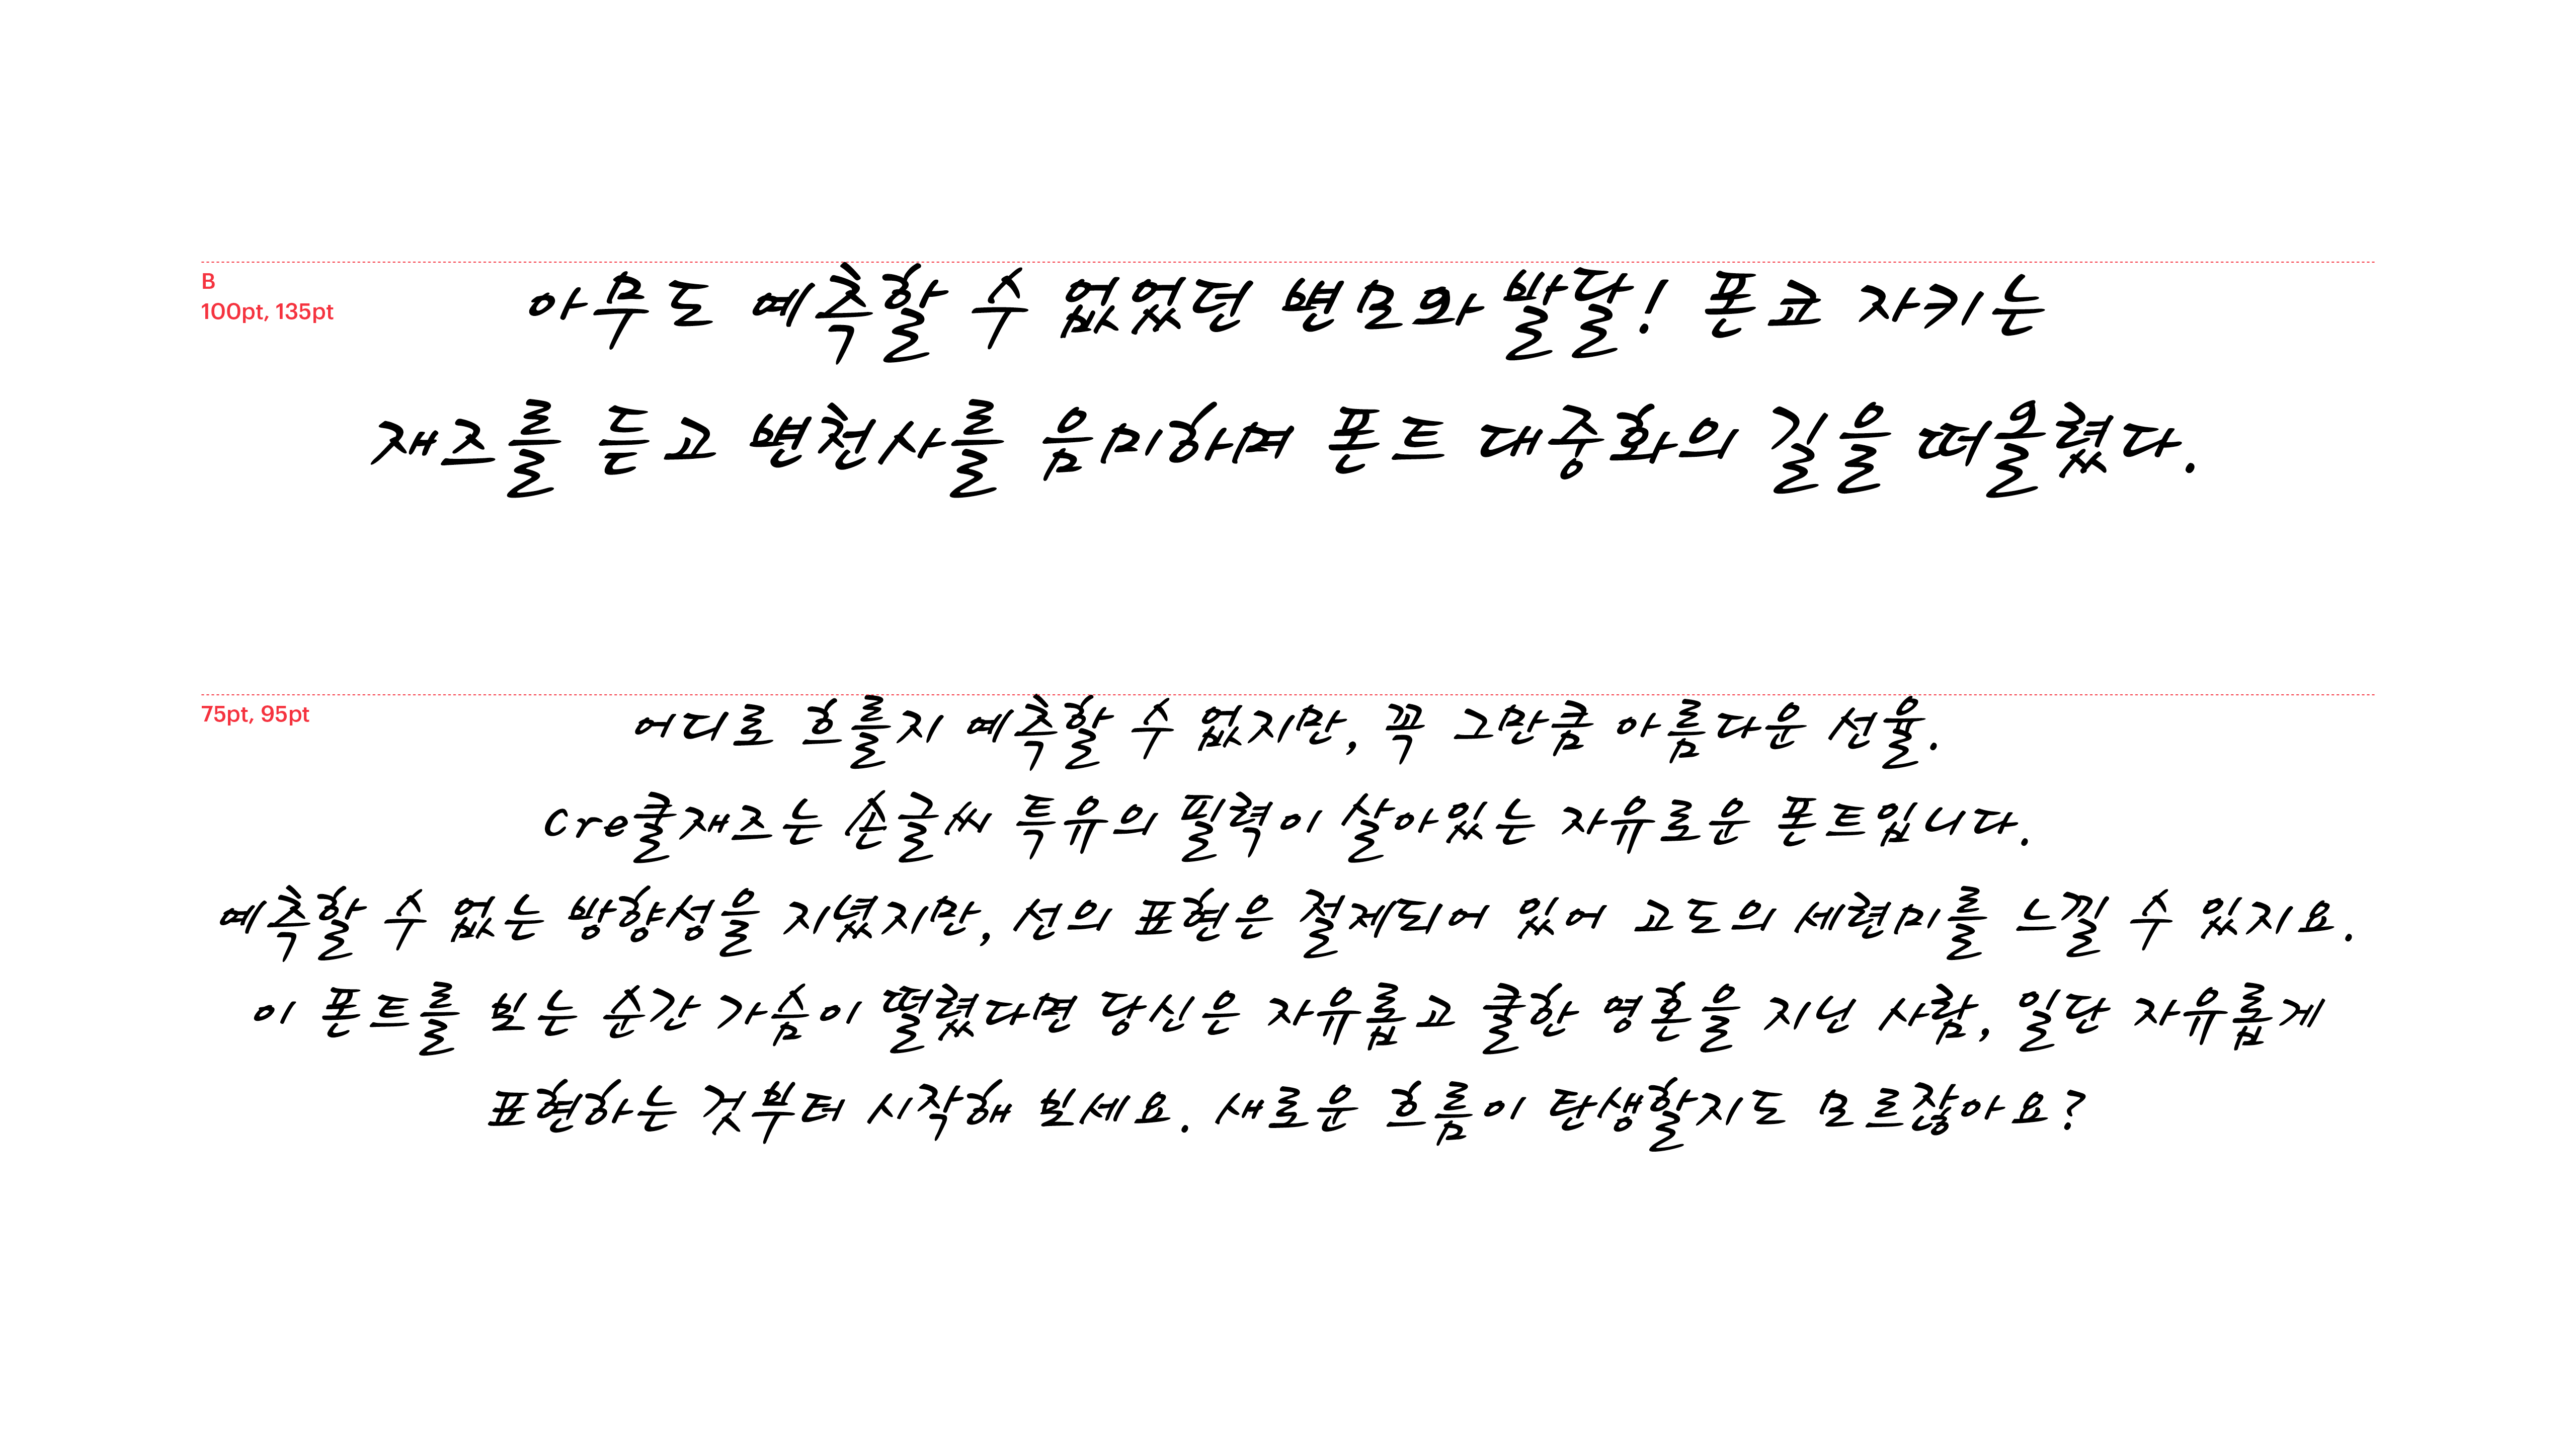 B
100pt, 135pt
아무도 예측할 수 없었던 변모와 발달! 폰쿄 자키는
재즈를 듣고 변천사를 음미하며 폰트 대중화의 길을 떠올렸다.
75pt, 95pt
어디로 흐를지 예측할 수 없지만, 꼭 그만큼 아름다운 선율.
Cre쿨재즈는 손글씨 특유의 필력이 살아있는 자유로운 폰트입니다.
예측할 수 없는 방향성을 지녔지만, 선의 표현은 절제되어 있어 고도의 세련미를 느낄 수 있지요.
이 폰트를 보는 순간 가슴이 떨렸다면 당신은 자유롭고 쿨한 영혼을 지닌 사람, 일단 자유롭게
표현하는 것부터 시작해 보세요. 새로운 흐름이 탄생할지도 모르잖아요?